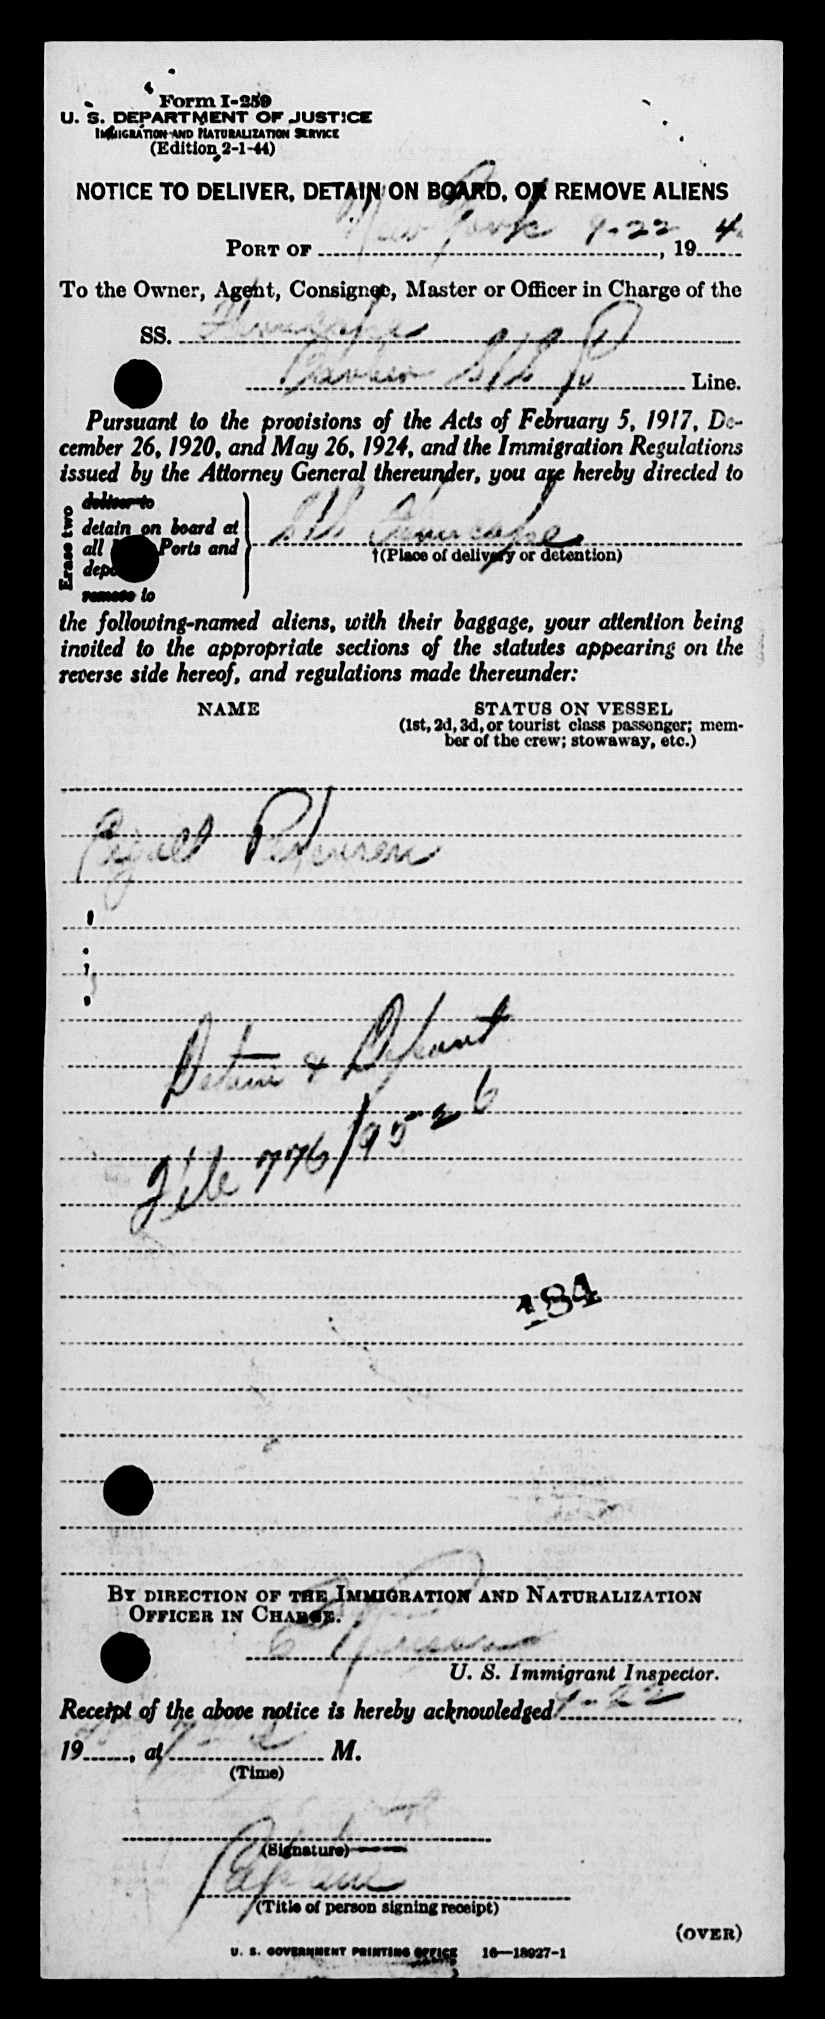 Form I-259
U. S. DEPARTMENT OF JUSTICE
IMMIGRATION AND NATURALIZATION SERVICE
(Edition 2-1-44)
NOTICE TO DELIVER, DETAIN ON BOARD, OR REMOVE ALIENS
PORT OF New York 9-22, 19 4
To the Owner, Agent, Consignee, Master or Officer in Charge of the
SS.
Line.
Pursuant to the provisions of the Acts of February 5, 1917, De-
cember 26, 1920, and May 26, 1924, and the Immigration Regulations
issued by the Attorney General thereunder, you are hereby directed to
Erase two
deliver to
detain on board at
all Ports and
remove to
†(Place of delivery or detention)
the following-named aliens, with their baggage, your attention being
invited to the appropriate sections of the statutes appearing on the
reverse side hereof, and regulations made thereunder:
NAME STATUS ON VESSEL
(1st, 2d, 3d, or tourist class passenger; mem-
ber of the crew; stowaway, etc.)
Detain & Deport
File 776/9526
184
BY DIRECTION OF THE IMMIGRATION AND NATURALIZATION
OFFICER IN CHARGE.
U. S. Immigrant Inspector.
Receipt of the above notice is hereby acknowledged 9-22
19, at M.
(Time)
(Signature)
Captain
(Title of person signing receipt)
(OVER)
U. S. GOVERNMENT PRINTING OFFICE 16—18927-1